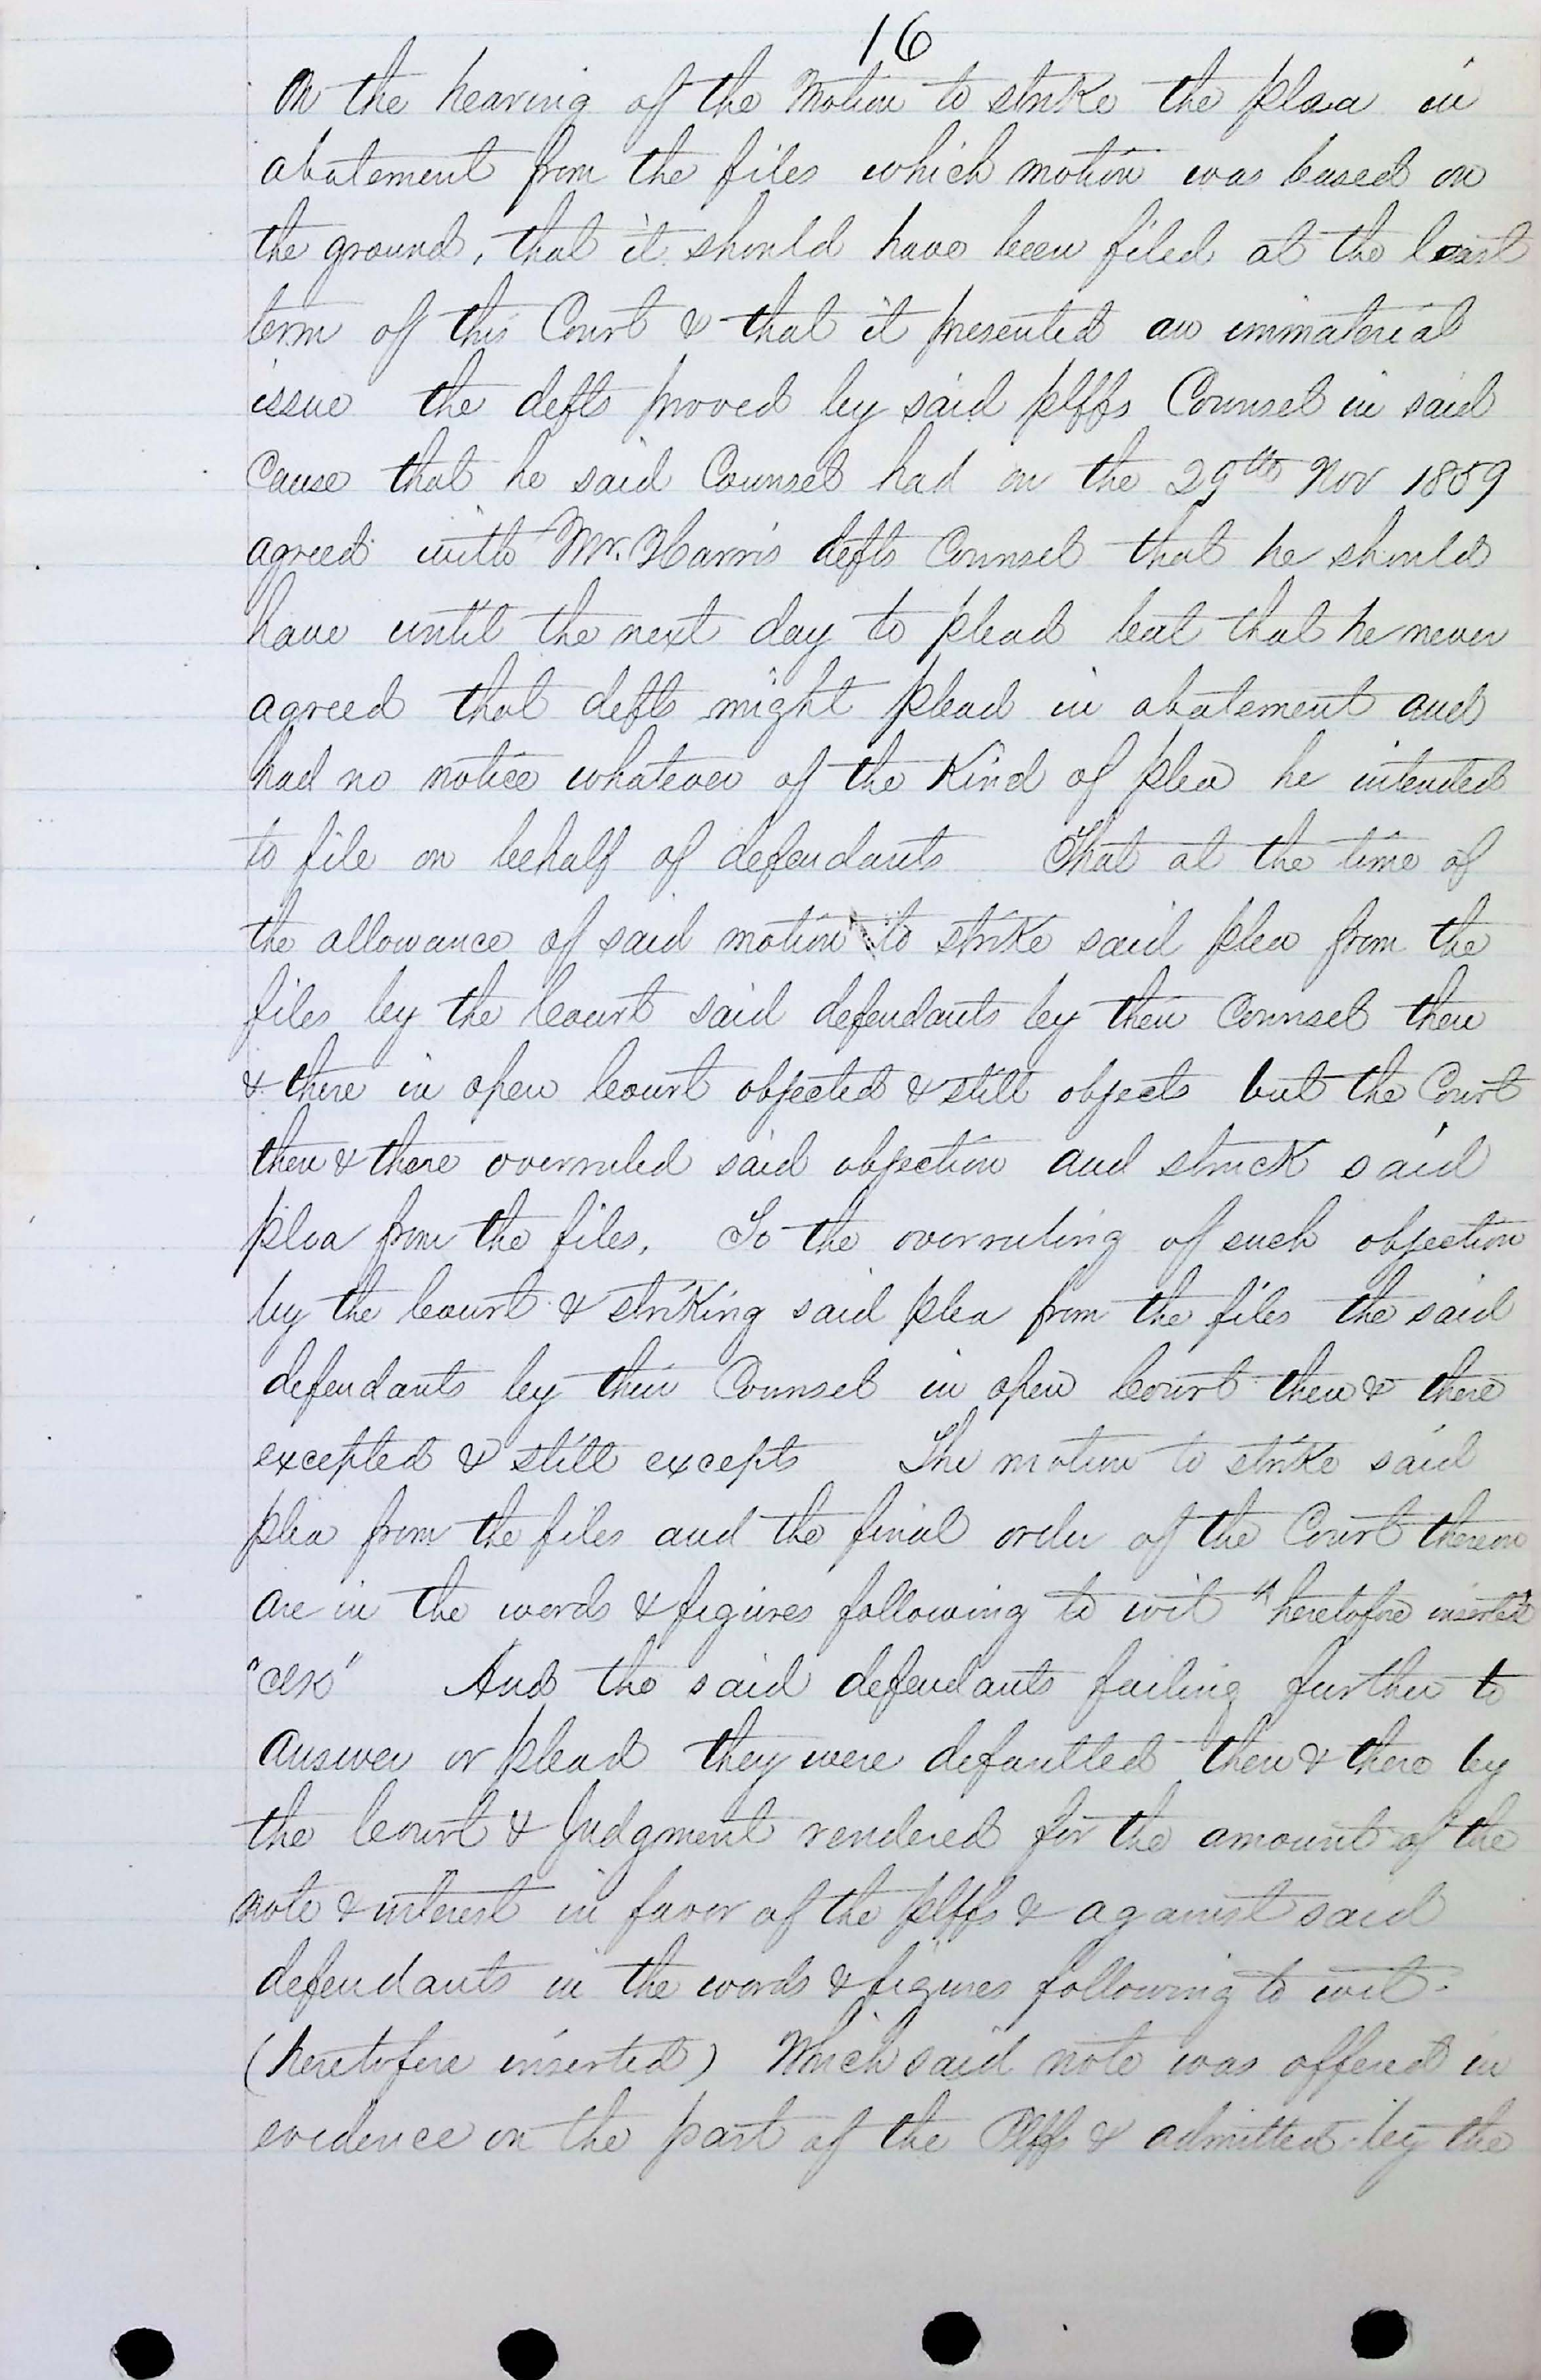 16
On the hearing of the Motion to strike the plea in
abatement from the files which motion was based on
the ground, that it should have been filed at the last
term of this Court & that it presented an immaterial
issue the defts proved by said plffs Counsel in said
Cause that he said Counsel had on the 29th Nov 1859
agreed with Mr. Harris defts Counsel that he should
have until the next day to plead but that he never
agreed that defts might plead in abatement and
had no notice whatever of the Kind of plea he intended
to file on behalf of defendants That at the time of
the allowance of said motion to strike said plea from the
files by the Court said defendants by their Counsel then
& there in open Court objected & still objects but the Court
then & there overruled said objection and struck said
plea from the files. To the overruling of such objection
by the Court & striking said plea from the files the said
defendants by their Counsel in open Court then & there
excepted & still excepts The motion to strike said
plea from the files and the final order of the Court thereon
are in the words & figures following to wit "heretofore inserted"
"Clk" And the said defendants failing further to
answer or plead they were defaulted then & there by
the Court & Judgment rendered for the amount of the
note & interest in favor of the plffs & against said
defendants in the words & figures following to wit-
(heretofore inserted) Which said note was offered in
evidence on the part of the Plffs & admitted by the